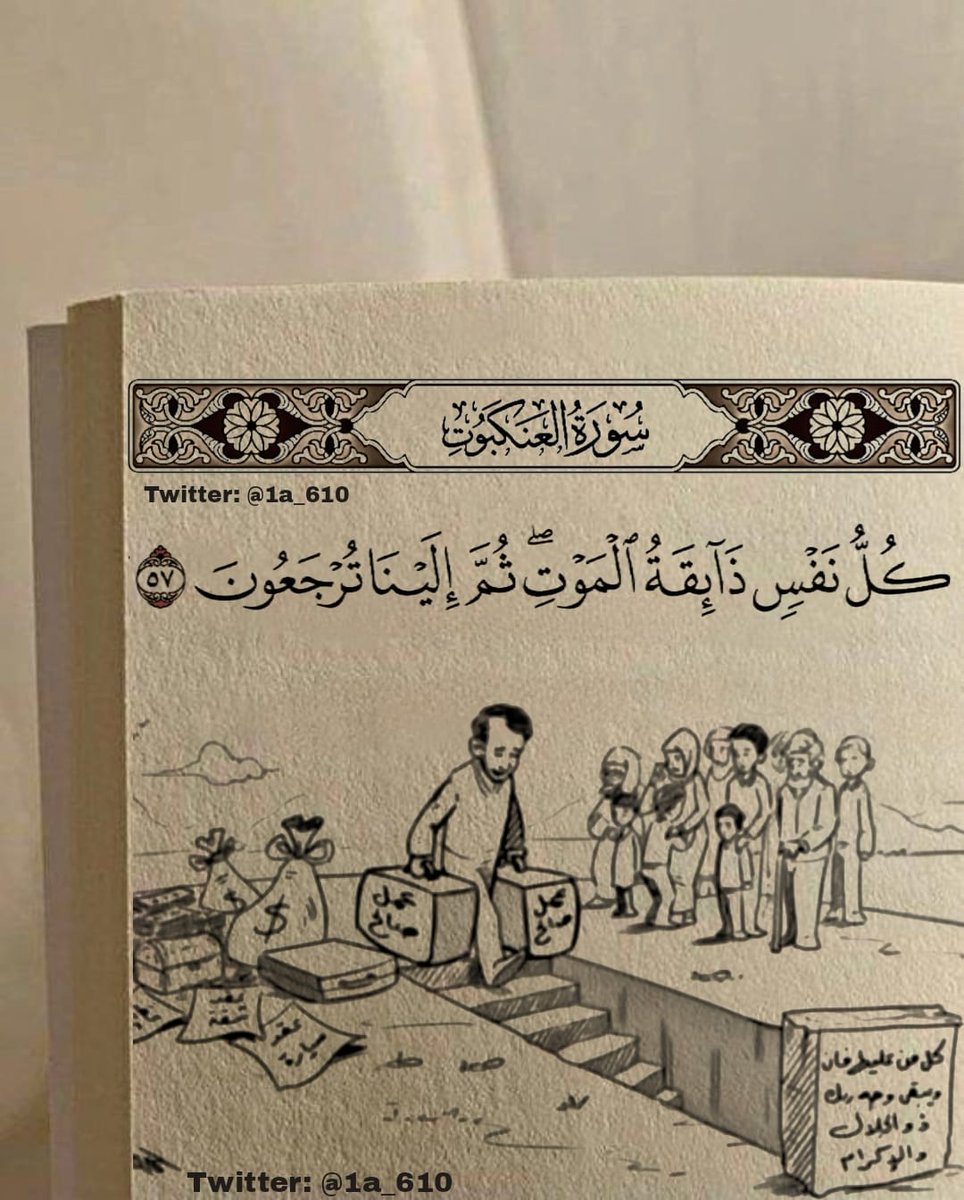 سُورَةُ العَنكَبُوتِ
Twitter: @1a_610
كُلُّ نَفْسٍ ذَآئِقَةُ ٱلْمَوْتِ ۖ ثُمَّ إِلَيْنَا تُرْجَعُونَ ٥٧
عمل
صالح
عمل
صالح
$
$
عقد
شقة
كل من عليها فان
ويبقى وجه ربك
ذو الجلال
والإكرام
Twitter: @1a_610